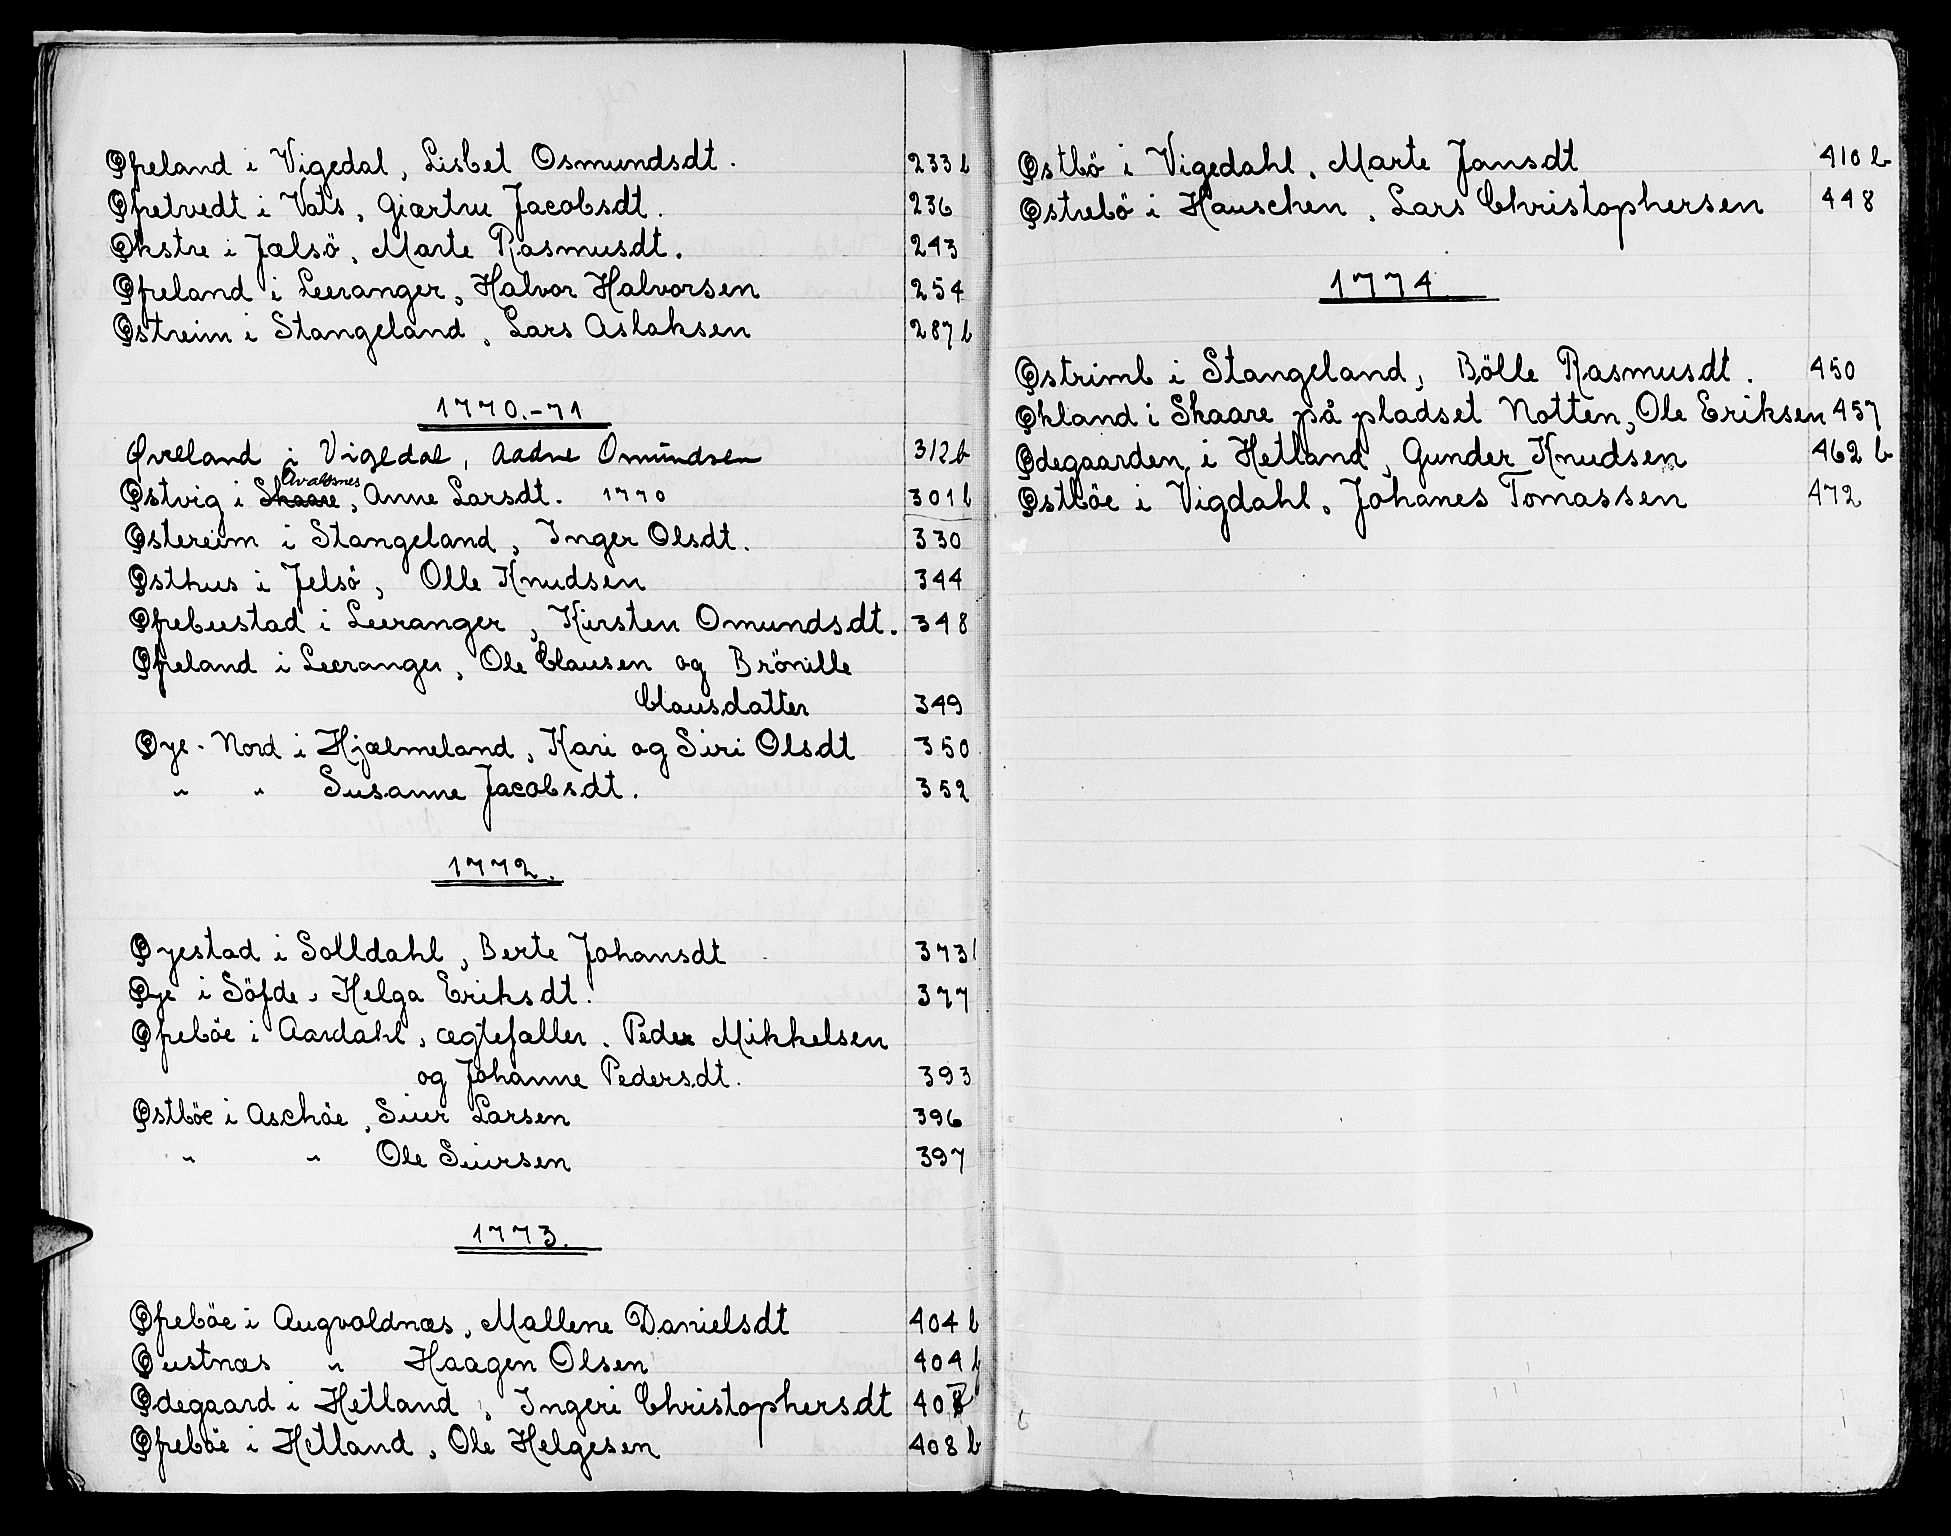 Øfreland i Vigedal, Lisbet Osmundsdt. 233 b
Øfretvedt i Vats, Giærtrue Jacobsdt. 236
Økstre i Jælsö, Marte Rasmusdt. 243
Øfreland i Leeranger, Halvor Halvorsen 254
Østreim i Stangeland, Lars Aslaksen 287 b
1770.-71
Øvreland i Vigedal, Aadne Omundsen 312 b
Avaldsnes
Østvig i Skaare, Anne Larsdt. 1770 301 b
Østereim i Stangeland, Inger Olsdt. 330
Østhus i Jelsö, Olle Knudsen 344
Øfrebustad i Leeranger, Kirsten Omundsdt. 348
Øfreland i Leeranger, Ole Clausen og Brönille
Clausdatter 349
Øye-Nord i Hjælmeland, Kari og Siri Olsdt 350
" " Susanne Jacobsdt. 352
1772.
Øyestad i Solldahl, Berte Johansdt 373 b
Øye i Söfde, Helga Eriksdt. 377
Øfreböe i Aardahl, ægtefæller. Peder Mikkelsen
og Johanne Pedersdt. 393
Østböe i Aschöe, Siur Larsen 396
" " Ole Siursen 397
1773.
Øfreböe i Augvaldnæs, Mallene Danielsdt 404 b
Øustnæs " Haagen Olsen 404 b
Ødegaard i Hetland, Ingeri Christophersdt 407
Øfreböe i Hetland, Ole Helgesen 408 b
Østbö i Vigedahl, Marte Jansdt 410 b
Østrebö i Hauschen, Lars Christophersen 448
1774.
Østrimb i Stangeland, Bölle Rasmusdt. 450
Økland i Skaare på pladset Notten, Ole Eriksen 457
Ødegaarden i Hetland, Gunder Knudsen 462 b
Østböe i Vigdahl, Johanes Tomassen 472